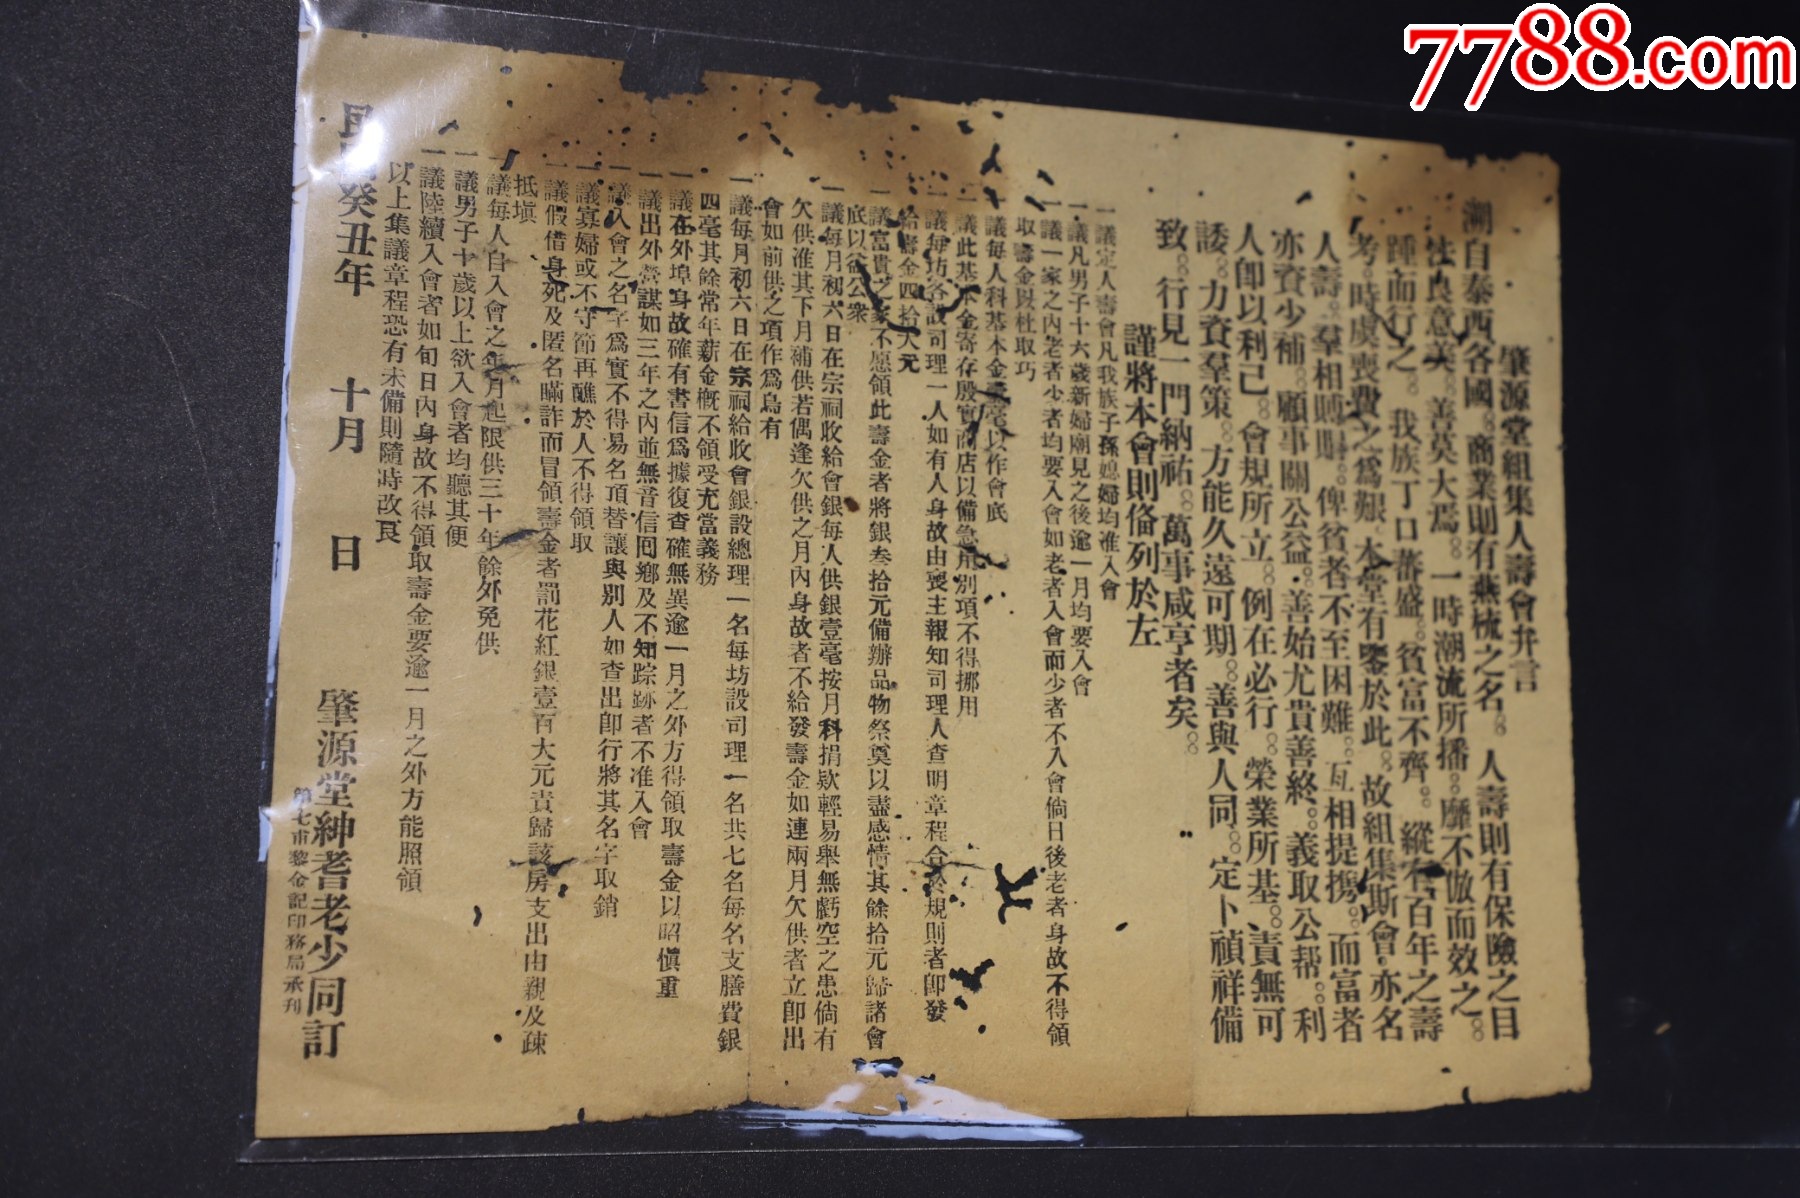 7788.com
肇源堂組集人壽會弁言
溯自泰西各國。商業則有燕梳之名。人壽則有保險之目
法良意美。善莫大焉。一時潮流所播。靡不倣而效之。
踵而行之。我族丁口蕃盛。貧富不齊。縱有百年之壽
考。時虞喪費之爲艱。本堂有鑒於此。故組集斯會。亦名
人壽。羣相賙賻。俾貧者不至困難。互相提携。而富者
亦資少補。顧事關公益。善始尤貴善終。義取公帮。利
人卽以利己。會規所立。例在必行。榮業所基。責無可
諉。力資羣策。方能久遠可期。善與人同。定卜禎祥備
致。行見一門納祐。萬事咸亨者矣。
謹將本會則俻列於左
一議定人壽會凡我族子孫媳婦均准入會
一議凡男子十六歲新婦廟見之後逾一月均要入會
一議一家之內老者少者均要入會如老者入會而少者不入會倘日後老者身故不得領
取壽金以杜取巧
一議每人科基本金壹毫以作會底
一議此基本金寄存殷實商店以備急用別項不得挪用
一議每坊各設司理一人如有人身故由喪主報知司理人查明章程合於規則者卽發
給壽金四拾大元
一議富貴之家不愿領此壽金者將銀叁拾元備辦品物祭奠以盡感情其餘拾元歸諸會
底以益公衆
一議每月初六日在宗祠收給會銀每人供銀壹毫按月科捐欵輕易舉無虧空之患倘有
欠供准其下月補供若偶逢欠供之月內身故者不給發壽金如連兩月欠供者立卽出
會如前供之項作爲烏有
一議每月初六日在宗祠給收會銀設總理一名每坊設司理一名共七名每名支膳費銀
四毫其餘常年薪金概不領受充當義務
一議在外埠身故確有書信爲據復查確無異逾一月之外方得領取壽金以昭慎重
一議出外營謀如三年之內並無音信囘鄉及不知踪跡者不准入會
一議入會之名字爲實不得易名頂替讓與別人如查出卽行將其名字取銷
一議寡婦或不守節再醮於人不得領取
一議假借身死及匿名瞞詐而冒領壽金者罰花紅銀壹百大元責歸該房支出由親及疎
抵塡
一議每人自入會之年月起限供三十年餘外免供
一議男子十歲以上欲入會者均聽其便
一議陸續入會者如旬日內身故不得領取壽金要逾一月之外方能照領
以上集議章程恐有未備則隨時改良
民國癸丑年 十月 日 肇源堂紳耆老少同訂
第七甫黎金記印務局承刋